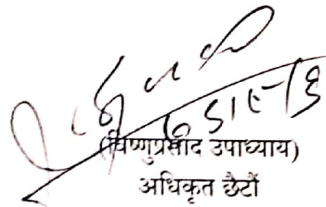 (विष्णुप्रसाद उपाध्याय)
अधिकृत छैटौं